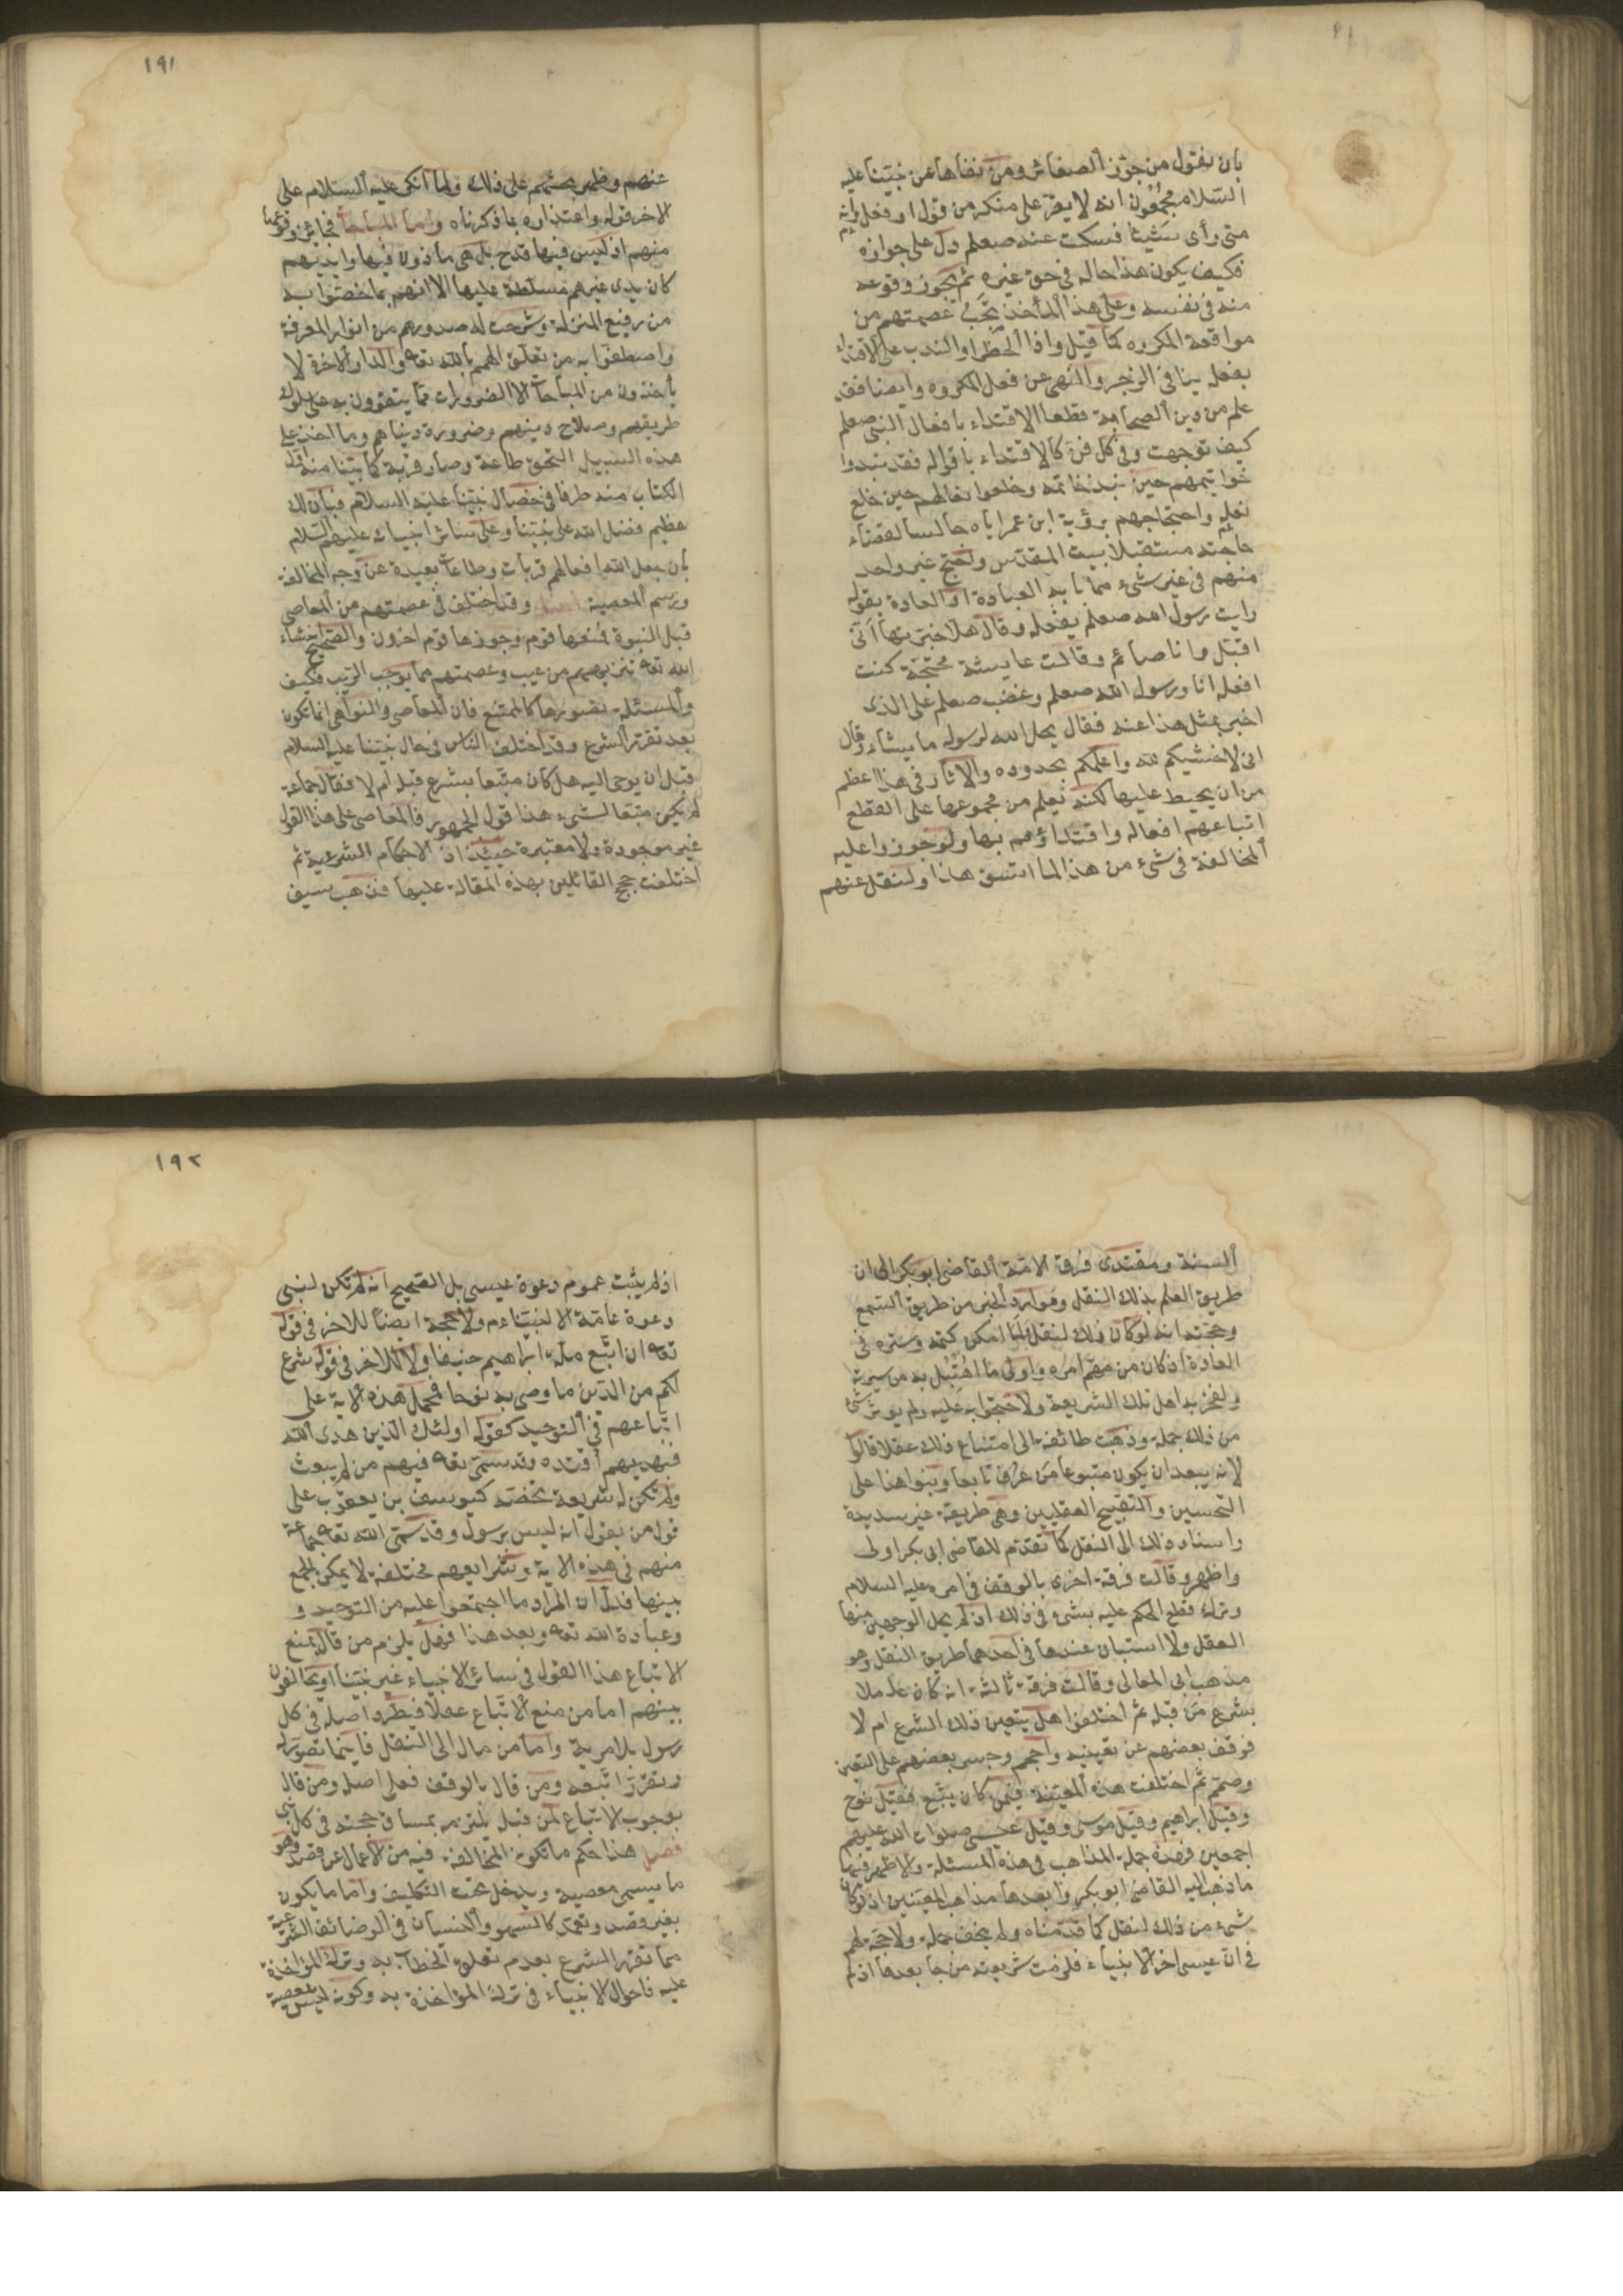 بان نقول من جوز الصغائر ومن نفاها عن نبينا عليه
السلام مجمعون انه لا يقر على منكر من قول او فعل وانه
متى رأى شيئا فسكت عنه صعلم دل على جوازه
فكيف يكون هذا حاله في حق غيره ثم يجوز وقوعه
منه في نفسه وعلى هذا المأخذ تجب عصمتهم من
مواقعة المكروه كما قيل واذا الحظر او الندب على الاقتداء
بفعله ينافي الزجر والنهى عن فعل المكروه وايضا فقد
علم من دين الصحابة قطعا الاقتداء بافعال النبي صعلم
كيف توجهت وفي كل فن كالاقتداء باقواله فقد نبذوا
خواتيمهم حين نبذ خاتمه وخلعوا نعالهم حين خلع
نعله واحتجاجهم برؤية ابن عمر اياه جالسا لقضاء
حاجته مستقبلا بيت المقدس واحتج غير واحد
منهم في غير شيء مما بابه العبادة او العادة بقوله
رايت رسول الله صعلم يفعله وقال هلا خبرتيها انى
اقبل وانا صائم وقالت عايشة محتجة كنت
افعله انا ورسول الله صعلم وغضب صعلم على الذى
اخبر بمثل هذا عنه فقال يحل الله لرسوله ما يشاء وقال
انى لاخشيكم لله واعلمكم بحدوده والاثار في هذا اعظم
من ان يحيط عليها لكنه يعلم من مجموعها على القطع
اتباعهم افعاله واقتداؤهم بها ولو جوزوا عليه
المخالفة في شيء من هذا لما اتسق هذا ولنقل عنهم
عنهم وظهر بحثهم على ذلك ولما انكر عليه السلام على
الاخر قوله واعتذاره بما ذكرناه واما المباحات فجائز وقوعها
منهم اذ ليس فيها قدح بل هي مأذون فيها وايديهم
كايدى غيرهم مسلطة عليها الا انهم بما خصوا به
من رفيع المنزلة وشرحت له صدورهم من انوار المعرفة
واصطفوا به من تعلق الهمم بالله تعه والدار الاخرة لا
يأخذون من المباحات الا الضرورات مما يتقوون به على سلوك
طريقهم وصلاح دينهم وضرورة دنياهم وما اخذ على
هذه السبيل التحق طاعة وصار قربة كما بينا منه اول
الكتاب منه طرفا في خصال نبينا عليه السلام فبان لك
عظيم فضل الله على نبينا وعلى سائر انبيائه عليهم السلام
بان جعل الله افعالهم قربات وطاعات بعيدة عن وجه المخالفة
ورسم المعصية فصل وقد اختلف في عصمتهم من المعاصى
قبل النبوة فمنعها قوم وجوزها قوم اخرون والصحيح انشاء
الله تعه تنزيههم من عيب وعصمتهم مما يوجب الريب فكيف
والمسئلة تصورها كالممتنع فان المعاصى والنواهى انما تكون
بعد تقرر الشرع وقد اختلف الناس في حال نبينا عليه السلام
قبل ان يوحى اليه هل كان متبعا بشرع قبله ام لا فقال جماعة
لم يكن متبعا لشيء هذا قول الجمهور فالمعاصى على هذا القول
غير موجودة ولا معتبرة حينئذ اذ الاحكام الشرعية ثم
اختلفت حجج القائلين بهذه المقالة عليها فذهب سيف
السنة ومقتدى فرق الامة القاضى ابو بكر الى ان
طريق العلم بذلك النقل وموارد الخبر من طريق السمع
وحجته انه لو كان ذلك لنقل ولما امكن كتمه وستره في
العادة اذ كان من مهم امره واولى ما اهتبل به من سيرته
ولفخر به اهل تلك الشريعة ولاحتجوا به عليه ولم يوثر شيء
من ذلك جملة وذهبت طائفة الى امتناع ذلك عقلا قالوا
لانه يبعد ان يكون متبوعا من عرف تابعا وبنوا هذا على
التحسين والتقبيح العقليين وهى طريقة غير سديدة
واسناد ذلك الى النقل كما تقدم للقاضى ابى بكر اولى
واظهر وقالت فرقة اخرى بالوقف في امره عليه السلام
وترك قطع الحكم عليه بشيء في ذلك اذ لم يحل الوجهين منها
العقل ولا استبان عندها في احدهما طريق النقل وهو
مذهب ابى المعالى وقالت فرقة ثالثة انه كان عاملا
بشرع من قبله ثم اختلفوا هل يتعين ذلك الشرع ام لا
فوقف بعضهم عن تعيينه واحجم وجسر بعضهم على التعيين
وصمم ثم اختلفت هذه المعينة فيمن كان يتبع فقيل نوح
وقيل ابراهيم وقيل موسى وقيل عيسى صلوات الله عليهم
اجمعين فهذه جملة المذاهب في هذه المسئلة والاظهر فيها
ما ذهب اليه القاضى ابو بكر وابعدها مذاهب المعينين اذ لو كان
شيء من ذلك لنقل كما قدمناه ولم يخف جملة ولا حجة لهم
في ان عيسى اخر الانبياء فلزمت شريعته من جا بعدها اذ لم
اذ لم يثبت عموم دعوة عيسى بل الصحيح انه لم تكن لنبى
دعوة عامة الا لنبينا ءم ولا حجة ايضا للاخر في قوله
تعه ان اتبع ملة ابراهيم حنيفا ولا للاخر في قوله شرع
لكم من الدين ما وصى به نوحا فحمل هذه الاية على
اتباعهم في التوحيد كقوله اولئك الذين هدى الله
فبهديهم اقتده وقد سمى تعه فيهم من لم يبعث
ولم تكن له شريعة تخصه كيوسف بن يعقوب على
قول من يقول انه ليس برسول وقد سمى الله تعه جماعة
منهم في هذه الاية وشرايعهم مختلفة لا يمكن الجمع
بينها فدل ان المراد ما اجتمعوا عليه من التوحيد و
وعبادة الله تعه وبعد هذا فهل يلزم من قال بمنع
الاتباع هذا القول في سائر الانبياء غير نبينا او يخالفون
بينهم اما من منع الاتباع عقلا فيطرد اصله في كل
رسول بلا مرية واما من مال الى النقل فاينما تصور له
وتقرر اتبعه ومن قال بالوقف فعلى اصله ومن قال
بوجوب الاتباع لمن قبله يلتزمه بمساق حجته في كل نبى
فصل هذا حكم ما تكون المخالفة فيه من الاعمال عن قصد وهو
ما يسمى معصية ويدخل تحت التكليف واما ما يكون
بغير قصد وتعمد كالسهو والنسيان في الوضائف الشرعية
مما تقرر الشرع بعدم تعلق الخطاب به وترك المؤاخذة
عليه فاحوال الانبياء في ترك المؤاخذة به وكونه ليس بمعصية